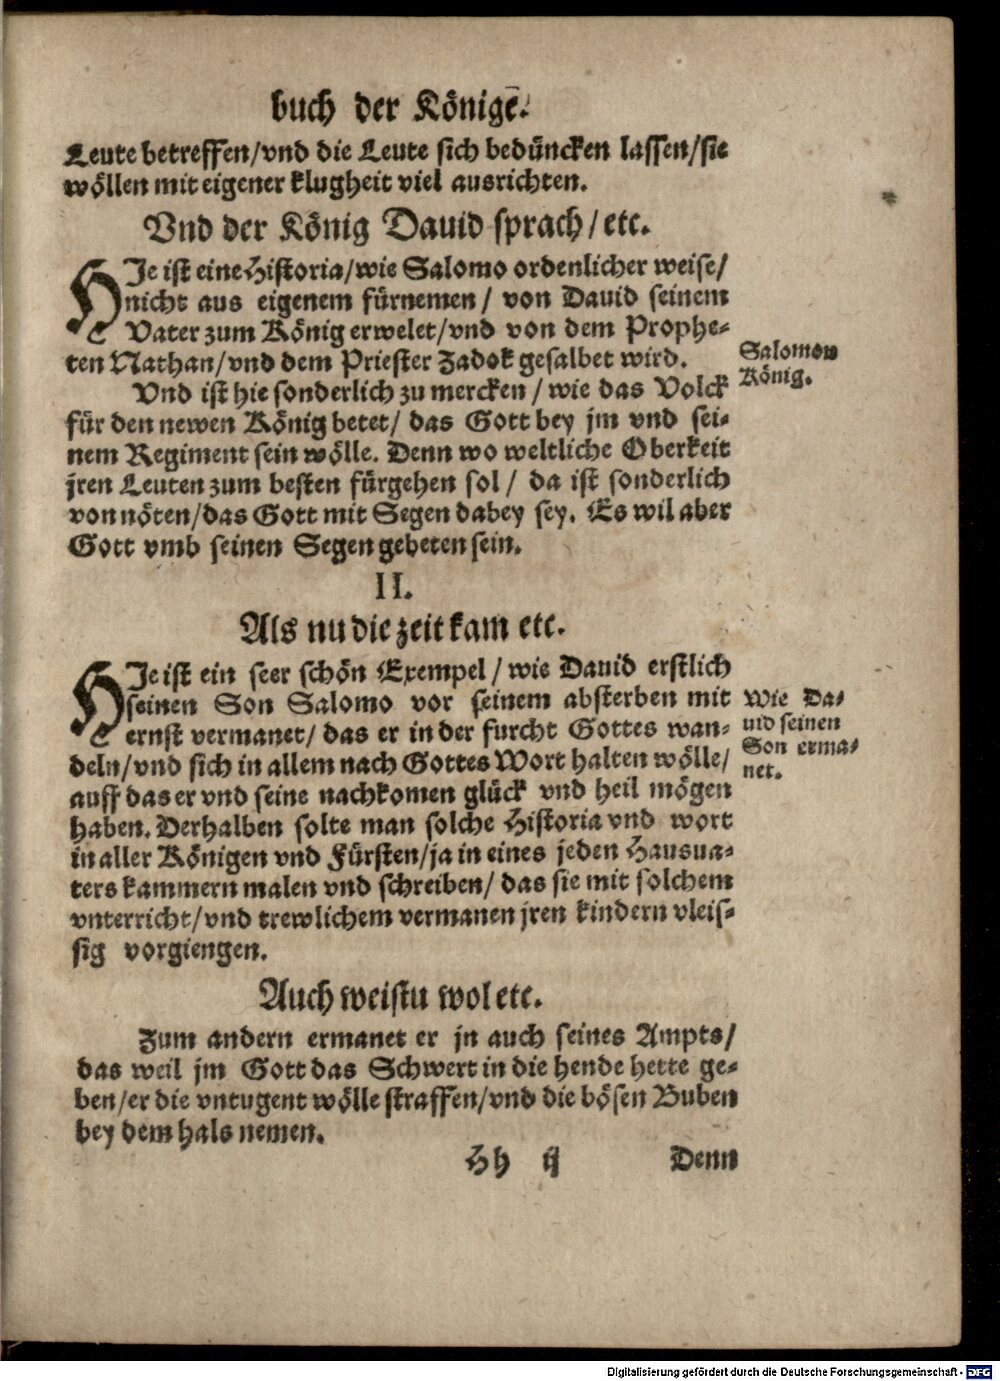 buch der Könige.
Leute betreffen/vnd die Leute sich bedüncken lassen/sie
wöllen mit eigener klugheit viel ausrichten.
Vnd der König Dauid sprach/etc.
HJe ist eine Historia/wie Salomo ordenlicher weise/
nicht aus eigenem fürnemen/ von Dauid seinem
Vater zum König erwelet/vnd von dem Prophe-
ten Nathan/vnd dem Priester Zadok gesalbet wird.
Salomon
König.
Vnd ist hie sonderlich zu mercken/ wie das Volck
für den newen König betet/ das Gott bey jm vnd sei-
nem Regiment sein wölle. Denn wo weltliche Oberkeit
jren Leuten zum besten fürgehen sol/ da ist sonderlich
von nöten/das Gott mit Segen dabey sey. Es wil aber
Gott vmb seinen Segen gebeten sein.
II.
Als nu die zeit kam etc.
HJe ist ein seer schön Exempel/ wie Dauid erstlich
seinen Son Salomo vor seinem absterben mit
ernst vermanet/ das er in der furcht Gottes wan-
deln/vnd sich in allem nach Gottes Wort halten wölle/
auff das er vnd seine nachkomen glück vnd heil mögen
haben. Derhalben solte man solche Historia vnd wort
in aller Königen vnd Fürsten/ja in eines jeden Hausua-
ters kammern malen vnd schreiben/ das sie mit solchem
vnterricht/vnd trewlichem vermanen jren kindern vleis-
sig vorgiengen.
Wie Da-
uid seinen
Son erma-
net.
Auch weistu wol etc.
Zum andern ermanet er jn auch seines Ampts/
das weil jm Gott das Schwert in die hende hette ge-
ben/er die vntugent wölle straffen/vnd die bösen Buben
bey dem hals nemen.
Hh ij Denn
Digitalisierung gefördert durch die Deutsche Forschungsgemeinschaft - DFG